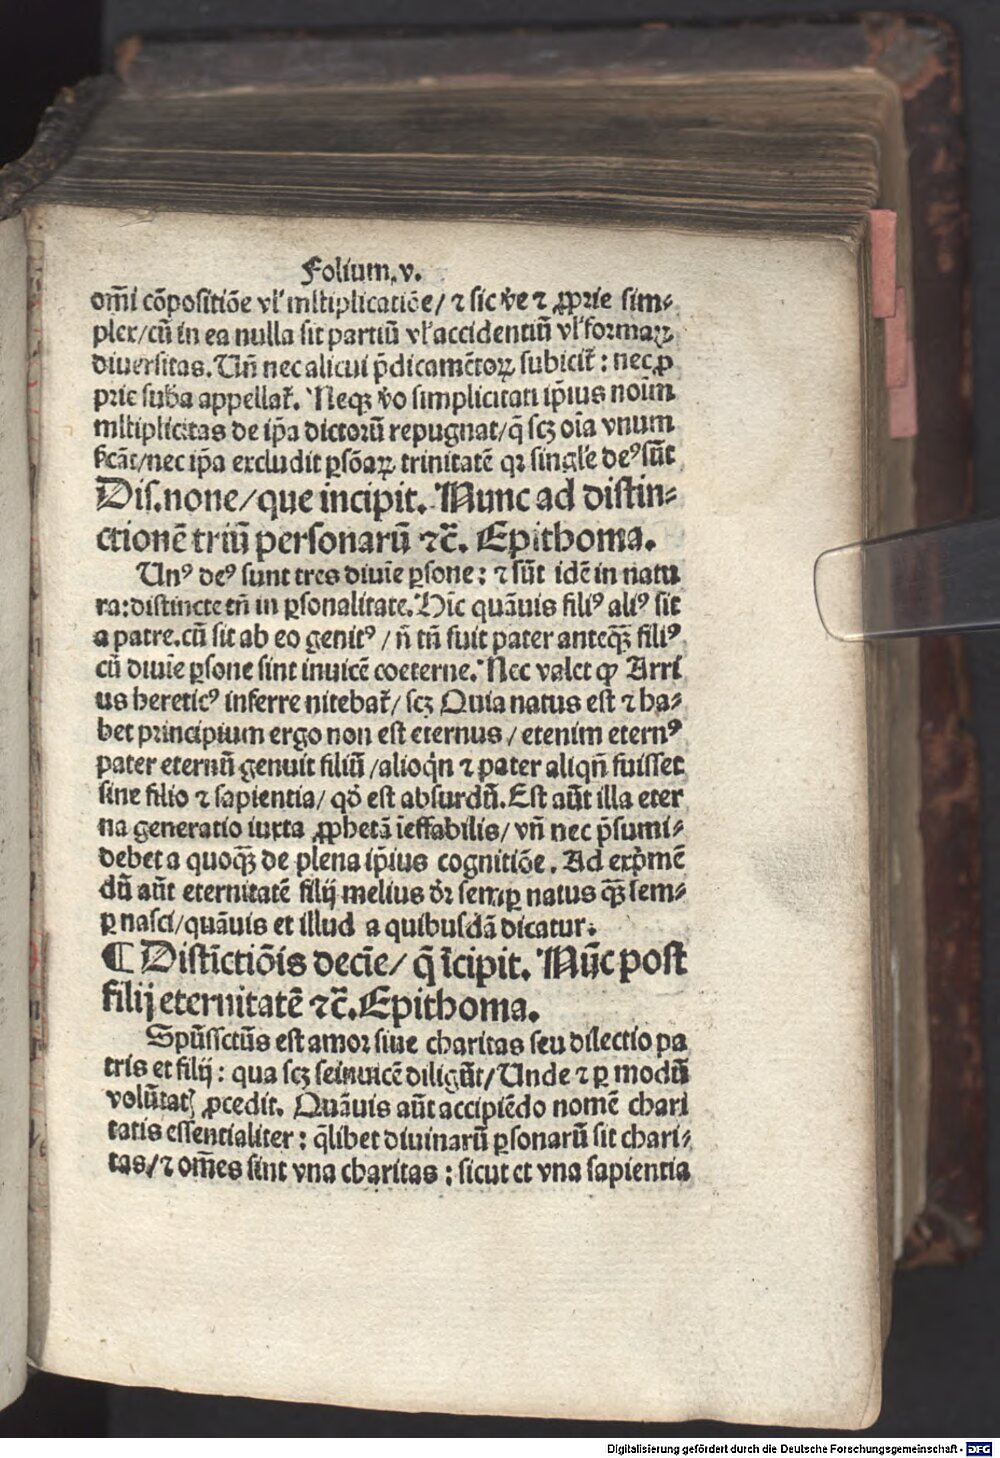 Folium. v.
om̄i cōpositiōe vl' mltiplicatiōe/ ⁊ sic v̓e ⁊ ꝓprie sim⸗
plex/cū in ea nulla sit partiū vl' accidentiū vl' formaꝝ
diuersitas. Un̄ nec alicui p̄dicamētoꝝ subicit̉ : nec ꝓ
prie sub̄a appellat̉. Neqꝫ v̓o simplicitati ip̄ius noīm
mltiplicitas de ip̄a dictorū repugnat/q̄ scꝫ oīa vnum
nec ip̄a excludit ꝑsōaꝝ trinitatē qꝛ singl'e deꝰ sūt
Dis. none/que incipit. Nunc ad distin⸗
ctionē triū personarū ⁊c̄. Epithoma.
Unꝰ deꝰ sunt tres diuīe ꝑsone: ⁊ sūt idē in natu
ra: distincte tn̄ in ꝑsonalitate. Hīc quāuis filiꝰ aliꝰ sit
a patre. cū sit ab eo genitꝰ / n̄ tn̄ fuit pater anteqꝫ̄ filiꝰ
cū diuīe ꝑsone sint inuicē coeterne. Nec valet ꝙ Arri
us hereticꝰ inferre nitebat̉/ scꝫ Quia natus est ⁊ ha⸗
bet principium ergo non est eternus / etenim eternꝰ
pater eternū genuit filiū /alioqͥn ⁊ pater aliqn̄ fuisset
sine filio ⁊ sapientia/ qd̓ est absurdū. Est aūt illa eter
na generatio iuxta ꝓphetā īeffabilis/ vn̄ nec p̄sumi⸗
debet a quoqꝫ̄ de plena ip̄ius cognitiōe. Ad expͥmē
dū aūt eternitatē filij melius dr̓ semꝑ natus qꝫ̄ sem⸗
ꝑ nasci/quāuis et illud a quibusdā dicatur.
¶ Distīctiōis decīe/ q̄ īcipit. Nūc post
filij eternitatē ⁊c̄. Epithoma.
Spūssctūs est amor siue charitas seu dilectio pa
tris et filij : qua scꝫ seinuicē diligūt/ Unde ⁊ ꝑ modū
volūtatꝭ ꝓcedit. Quāuis aūt accipiēdo nomē chari
tatis essentialiter : q̄libet diuinarū ꝑsonarū sit chari⸗
tas/ ⁊ om̄es sint vna charitas : sicut et vna sapientia
Digitalisierung gefördert durch die Deutsche Forschungsgemeinschaft - DFG